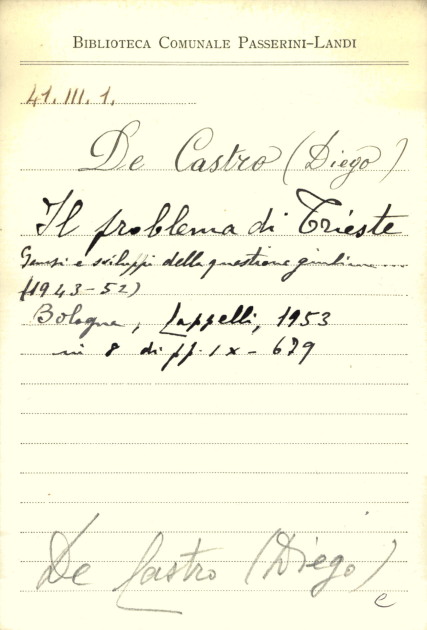 BIBLIOTECA COMUNALE PASSERINI-LANDI
41.III.1.
De Castro (Diego)
Il problema di Trieste
Genesi e sviluppi della questione giuliana ...
(1943-52)
Bologna, Cappelli, 1953
in 8 di pp. IX - 679
De Castro (Diego)
e